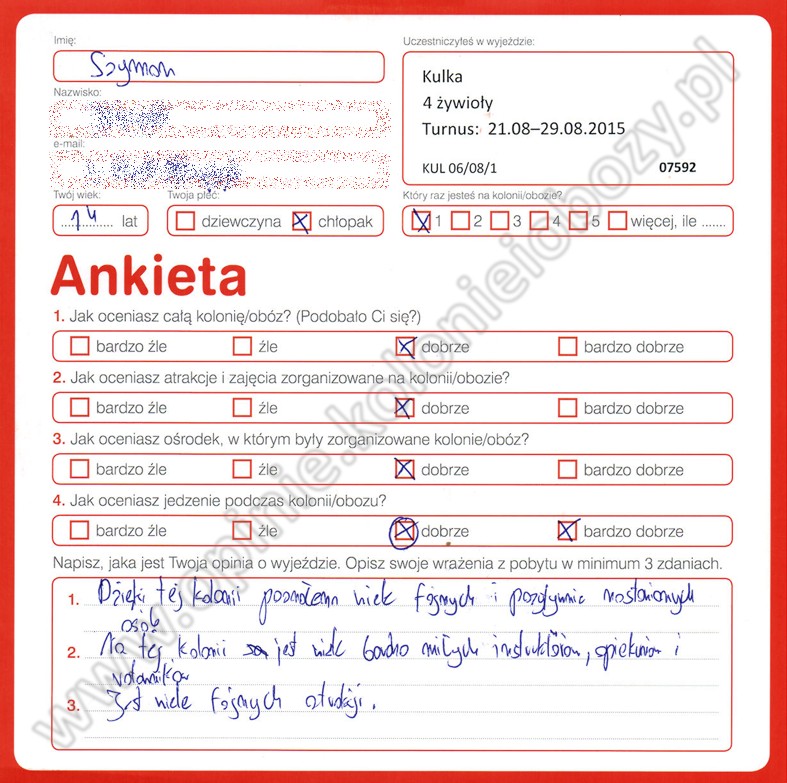 Imię:
Szymon
Uczestniczyłeś w wyjeździe:
Kulka
4 żywioły
Turnus: 21.08–29.08.2015
KUL 06/08/1 07592
Nazwisko:
e-mail:
Twój wiek:
14 lat
Twoja płeć:
dziewczyna chłopak
Który raz jesteś na kolonii/obozie?
1 2 3 4 5 więcej, ile .......
Ankieta
1. Jak oceniasz całą kolonię/obóz? (Podobało Ci się?)
bardzo źle źle dobrze bardzo dobrze
2. Jak oceniasz atrakcje i zajęcia zorganizowane na kolonii/obozie?
bardzo źle źle dobrze bardzo dobrze
3. Jak oceniasz ośrodek, w którym były zorganizowane kolonie/obóz?
bardzo źle źle dobrze bardzo dobrze
4. Jak oceniasz jedzenie podczas kolonii/obozu?
bardzo źle źle dobrze bardzo dobrze
Napisz, jaka jest Twoja opinia o wyjeździe. Opisz swoje wrażenia z pobytu w minimum 3 zdaniach.
1. Dzięki tej kolonii poznałem wiele fajnych i pozytywnie nastawionych
osób
2. Na tej kolonii jest wiele bardzo miłych instruktórow, opiekunów i
3. Jest wiele fajnych atrakcji.
www.opinie.kolonieiobozy.pl